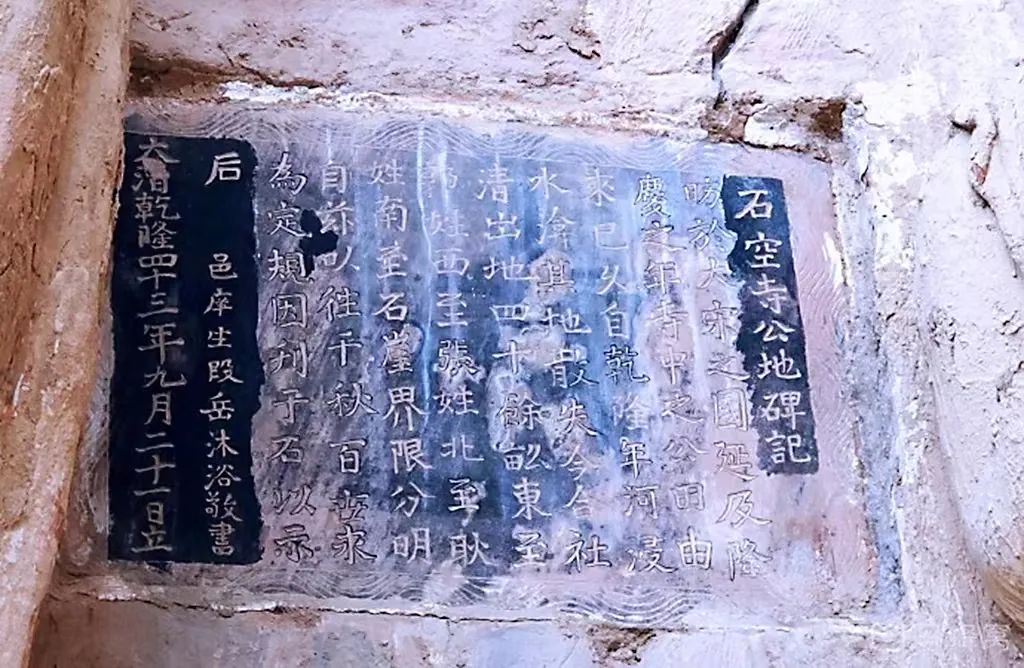 石空寺公地碑記
昉於大宋之國延及隆
慶之年寺中之公田由
來已久自乾隆年河浸
水渰其地散失今合社
清出地四十餘畝東至
姓西至張姓北至耿
姓南至石崖界限分明
自茲以往千秋百世永
為定規因刋于石以示
后 邑庠生段岳沐浴敬書
大清乾隆四十三年九月二十一日立